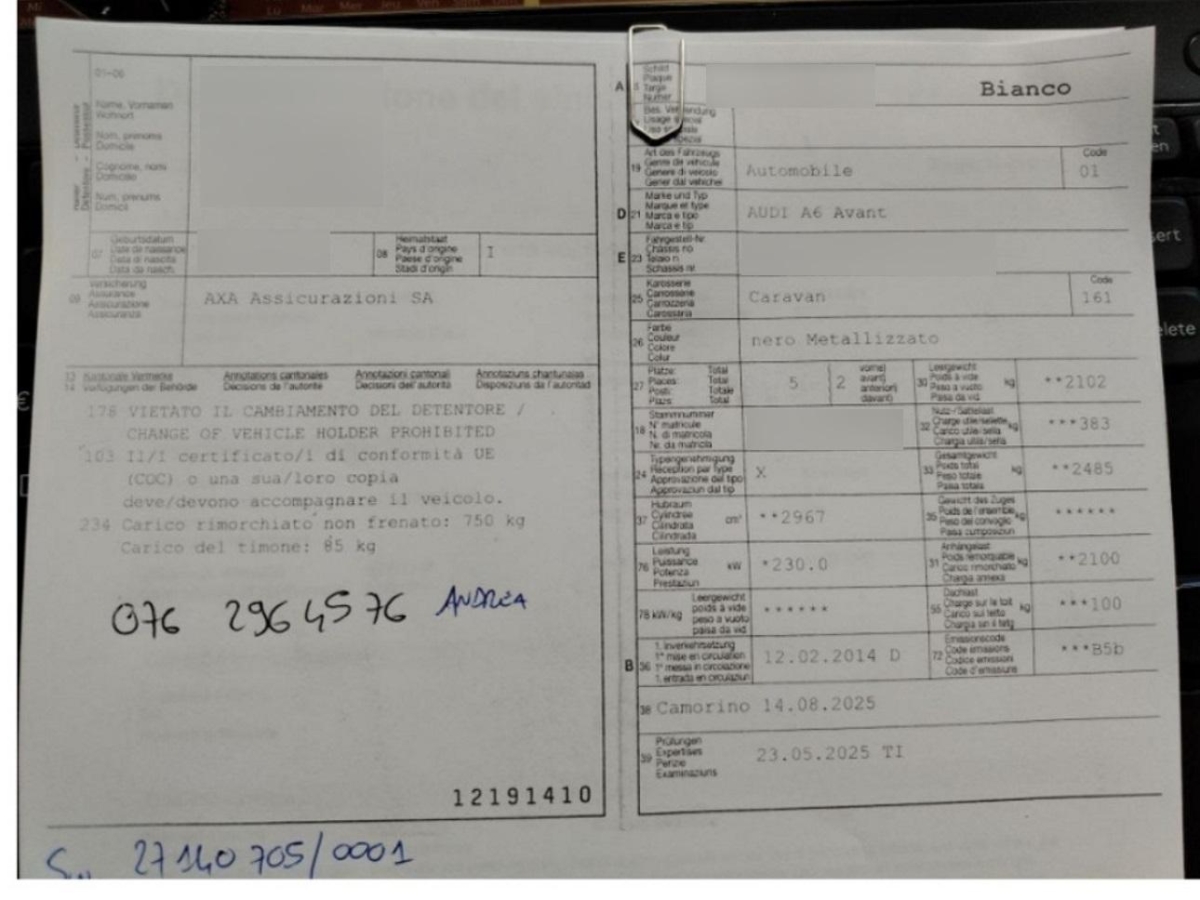 01-06
Name, Vornamen
Wohnort
Nom, prénoms
Domicile
Cognome, nomi
Domicilio
Num, prenums
Domicil
07
Geburtsdatum
Date de naissance
Data di nascita
Data da nasch.
08
Heimatstaat
Pays d'origine
Paese d'origine
Stadi d'origin
I
09
Versicherung
Assurance
Assicurazione
Assicuranza
AXA Assicurazioni SA
13 Kantonale Vermerke Annotations cantonales Annotazioni cantonali Annotaziuns chantunalas
14 Verfügungen der Behörde Décisions de l'autorité Decisioni dell'autorità Disposiziuns da l'autoritad
178 VIETATO IL CAMBIAMENTO DEL DETENTORE /
CHANGE OF VEHICLE HOLDER PROHIBITED
103 Il/I certificato/i di conformità UE
(COC) o una sua/loro copia
deve/devono accompagnare il veicolo.
234 Carico rimorchiato non frenato: 750 kg
Carico del timone: 85 kg
076 296 45 76 ANDREA
12191410
27140705/0001
A
Schild
Plaque
Targa
Numer
Bianco
19
Art des Fahrzeugs
Genre de véhicule
Genere di veicolo
Gener dal vehichel
Automobile
Code
01
D 21
Marke und Typ
Marque et type
Marca e tipo
Marca e tip
AUDI A6 Avant
E 23
Fahrgestell-Nr.
Châssis no
Telaio n.
Schassis nr.
25
Karosserie
Carrosserie
Carrozzeria
Carossaria
Caravan
Code
161
26
Farbe
Couleur
Colore
Colur
nero Metallizzato
27
Plätze: Total
Places: Total
Posti: Totale
Plazs: Total
5
2
vorne)
avant)
anteriori)
davant)
30
Leergewicht
Poids à vide
Peso a vuoto
Paisa da vid
kg
**2102
18
Stammnummer
N° matricule
N. di matricola
Nr. da matricla
32
Nutz-/Sattellast
Charge utile/sellette
Carico utile/sella
Chargia utila/sella
kg
***383
24
Typengenehmigung
Réception par type
Approvazione del tipo
Approvaziun dal tip
X
33
Gesamtgewicht
Poids total
Peso totale
Paisa totala
kg
**2485
37
Hubraum
Cylindrée
Cilindrata
Cilindrada
cm³
**2967
35
Gewicht des Zuges
Poids de l'ensemble
Peso del convoglio
Paisa cumposiziun
kg
******
76
Leistung
Puissance
Potenza
Prestaziun
kW
*230.0
31
Anhängelast
Poids remorquable
Carico rimorchiato
Chargia annexa
kg
**2100
78 kW/kg
Leergewicht
poids à vide
peso a vuoto
paisa da vid
******
55
Dachlast
Charge sur le toit
Carico sul tetto
Chargia sin il tetg
kg
***100
B 36
1. Inverkehrsetzung
1re mise en circulation
1a messa in circolazione
1. entrada en circulaziun
12.02.2014 D
72
Emissionscode
Code émissions
Codice emissioni
Code d'emissiuns
***B5b
38 Camorino 14.08.2025
39
Prüfungen
Expertises
Perizie
Examinaziuns
23.05.2025 TI